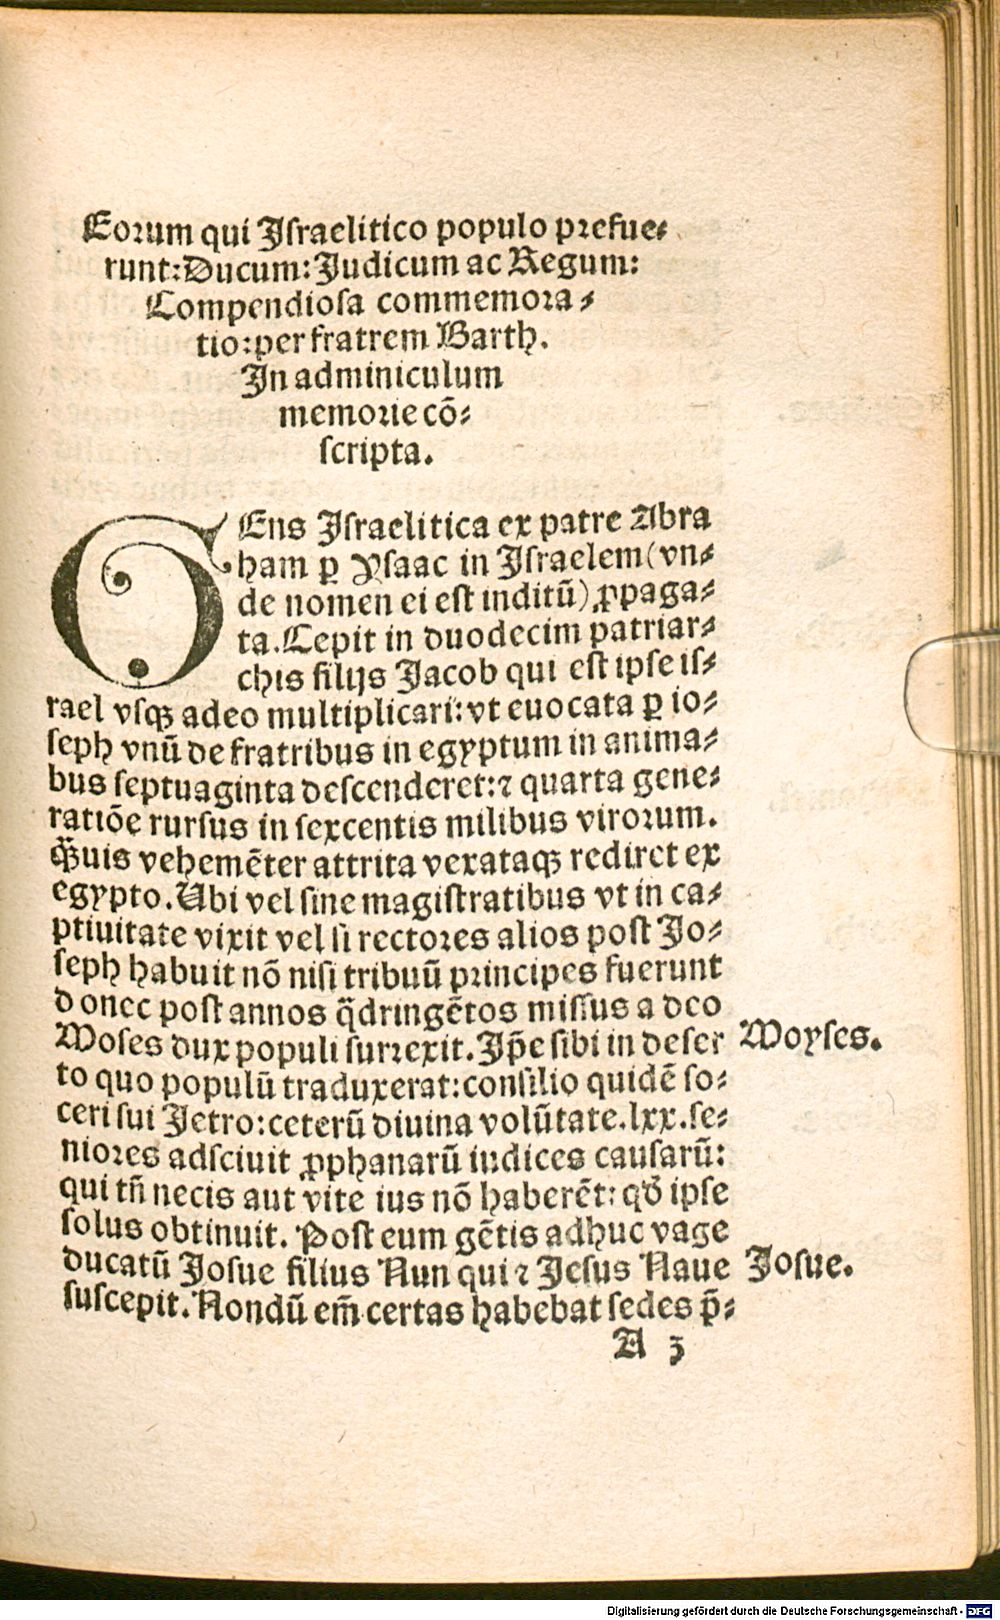 Eorum qui Israelitico populo prefue⸗
runt: Ducum: Judicum ac Regum:
Compendiosa commemora⸗
tio: per fratrem Barth.
In adminiculum
memorie cō⸗
scripta.
GEns Israelitica ex patre Abra
ham ꝑ Ysaac in Israelem (vn⸗
de nomen ei est inditū) ꝓpaga⸗
ta. Cepit in duodecim patriar⸗
chis filijs Jacob qui est ipse is⸗
rael vsqꝫ adeo multiplicari: vt euocata ꝑ io⸗
seph vnū de fratribus in egyptum in anima⸗
bus septuaginta descenderet: ⁊ quarta gene⸗
ratiōe rursus in sexcentis milibus virorum.
Qͣuis vehemēter attrita vexataqꝫ rediret ex
egypto. Ubi vel sine magistratibus vt in ca⸗
ptiuitate vixit vel si rectores alios post Jo⸗
seph habuit nō nisi tribuū principes fuerunt
donec post annos qͣdringētos missus a deo
Moses dux populi surrexit. Ip̄e sibi in deser
to quo populū traduxerat: consilio quidē so⸗
ceri sui Jetro: ceterū diuina volūtate. lxx. se⸗
niores adsciuit ꝓphanarū iudices causarū:
qui tn̄ necis aut vite ius nō haberēt: qď ipse
solus obtinuit. Post eum gētis adhuc vage
ducatū Josue filius Nun qui ⁊ Jesus Naue
suscepit. Nondū em̄ certas habebat sedes p̄⸗
A 3
Moyses.
Josue.
Digitalisierung gefördert durch die Deutsche Forschungsgemeinschaft - DFG